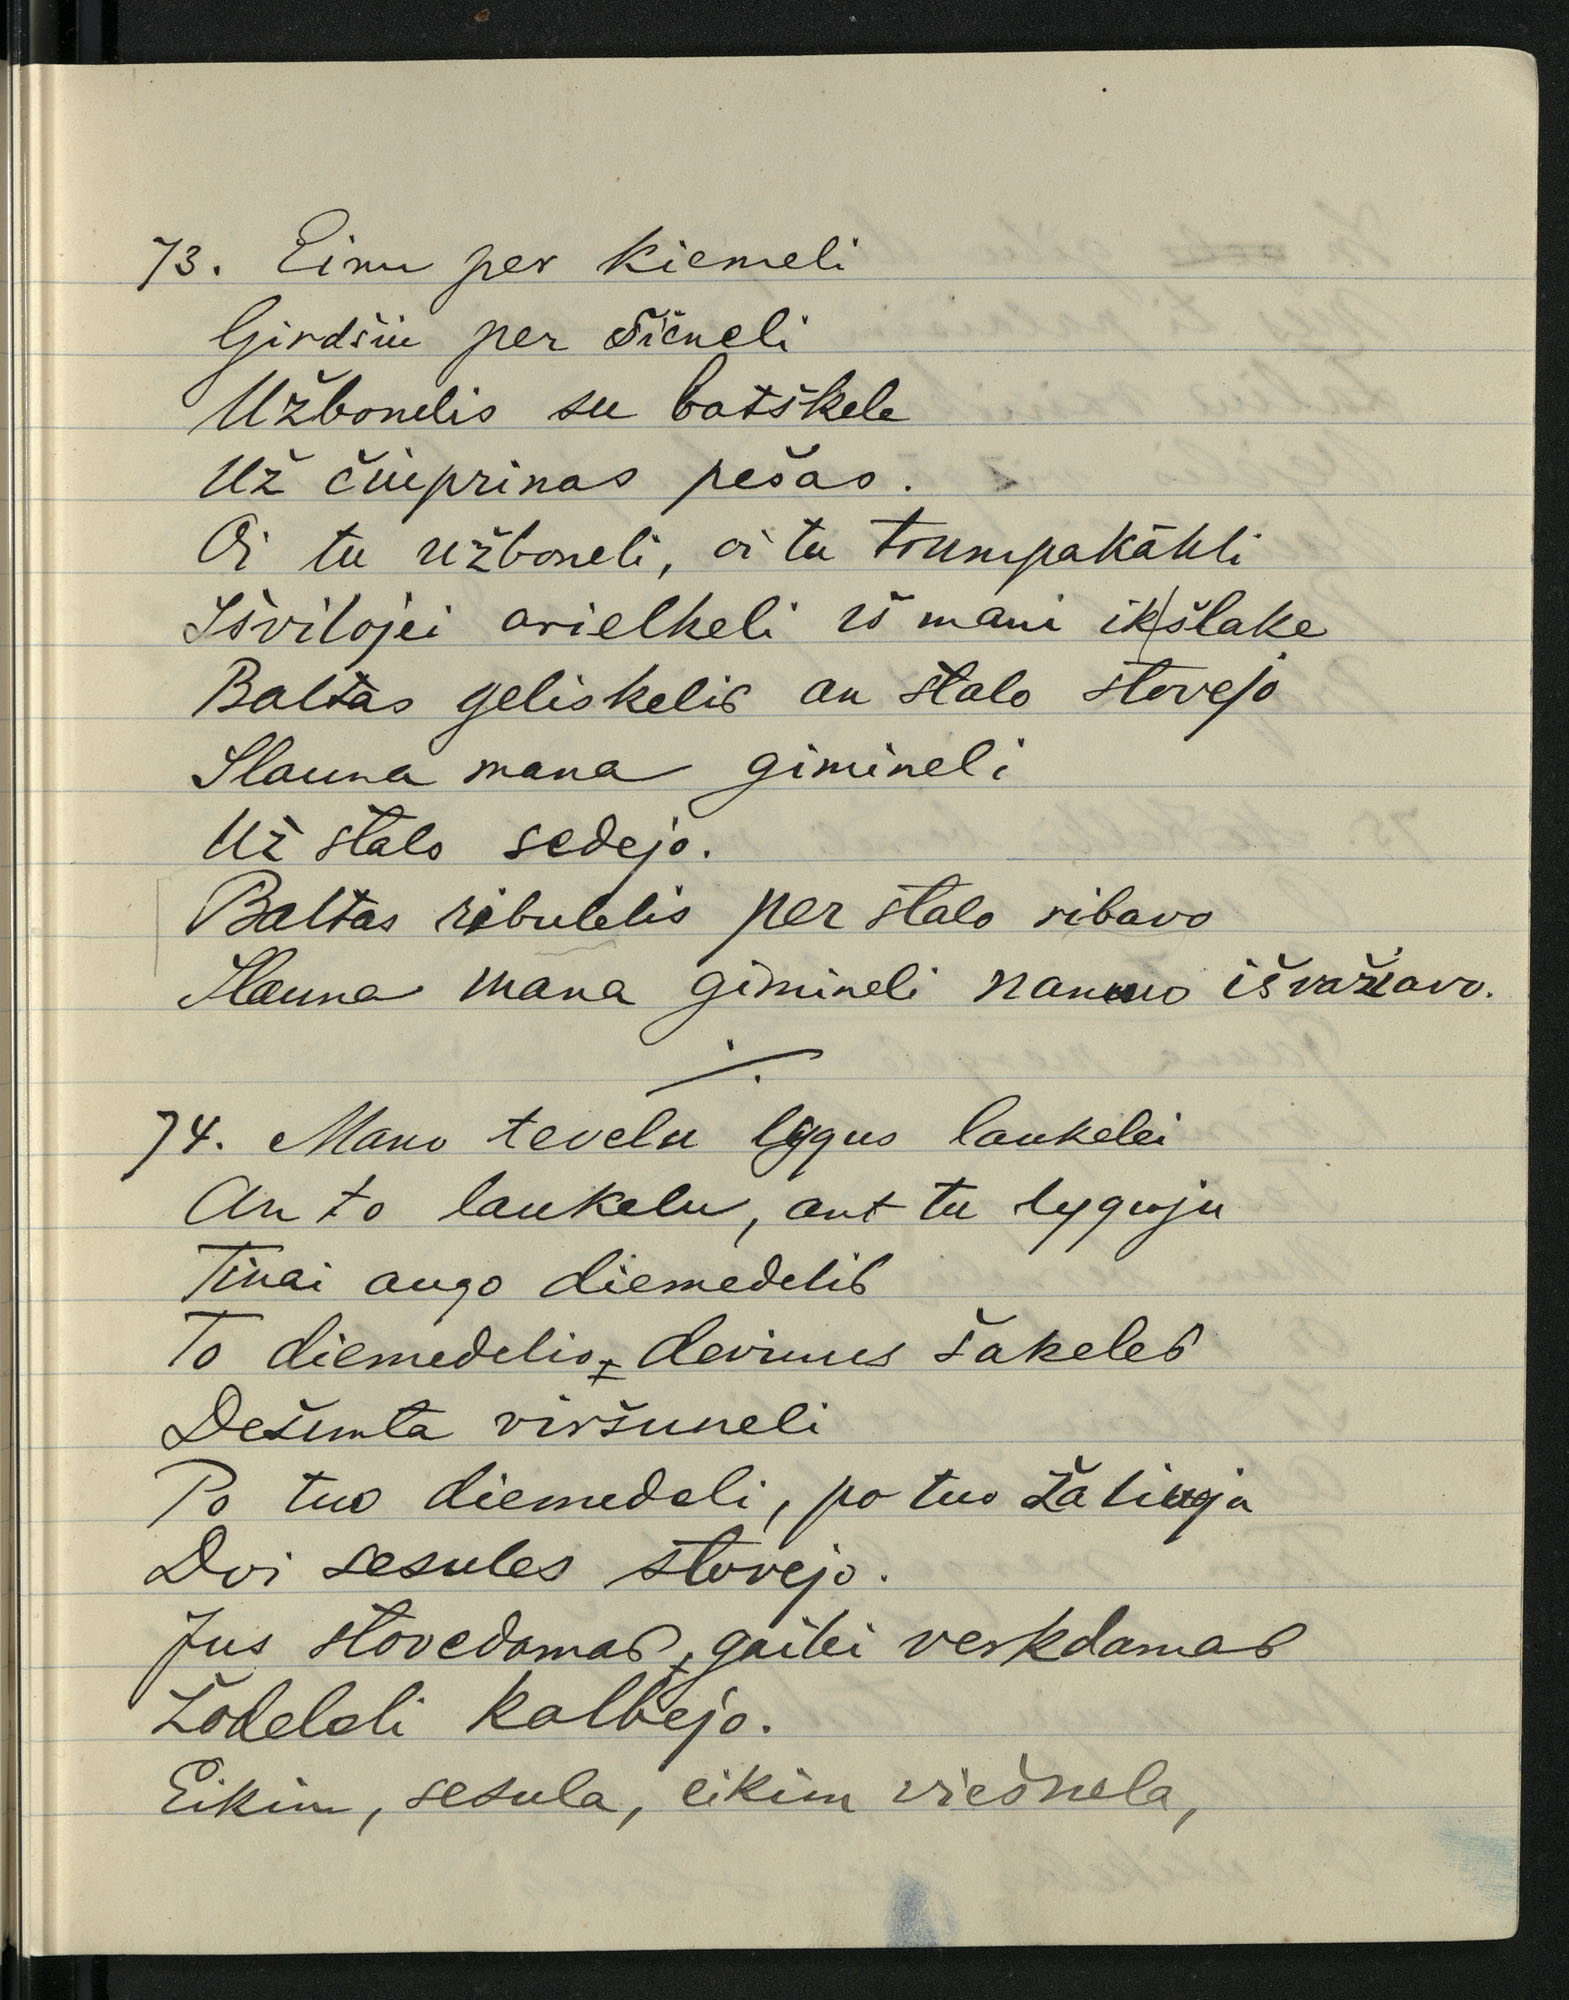 73. Einu per kiemeli
Girdšiu per sieneli
Užbonelis su batškele
Už čiuprinas pešas.
Oi tu užboneli, oi tu trumpakākli
Išvilojei arielkeli iš mani ik šlake
Baltas geliskelis an stalo stovejo
Slauna mana gimineli
Už stalo sedejo.
Baltas ribulelis per stalo ribavo
Slauna mana gimineli namo išvažiavo.
74. Mano tevelu lygus laukelei
An to laukelu, ant tu lyguju
Tinai augo diemedelis
To diemedelio, devinues šakeles
Dešimta viršuneli
Po tuo diemedeli, po tuo žaliuju
Dvi sesules stovejo.
Jus stovedamas, gailei verkdamas
Žodeleli kalbejo.
Eikim, sesula, eikim viešnela,